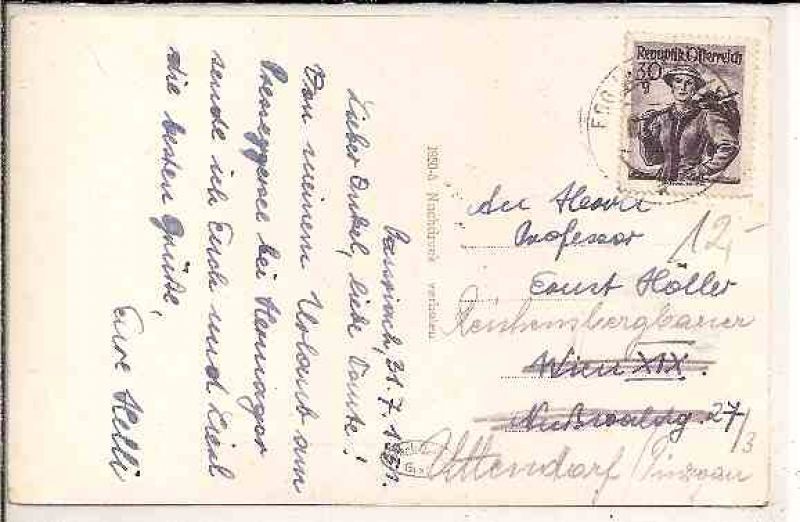 31.7.1951.
Lieber Onkel, liebe Tante!
Von meinem Urlaub am
Presseggersee bei Hermagor
sende ich Euch und Liesl
die besten Grüße,
Eure Helli
1950-A Nachdruck verboten
Republik Österreich
30
g
An Herrn
Professor
Ernst Höller
12,-
Wien XIX.
27/3
Uttendorf Pinzgau